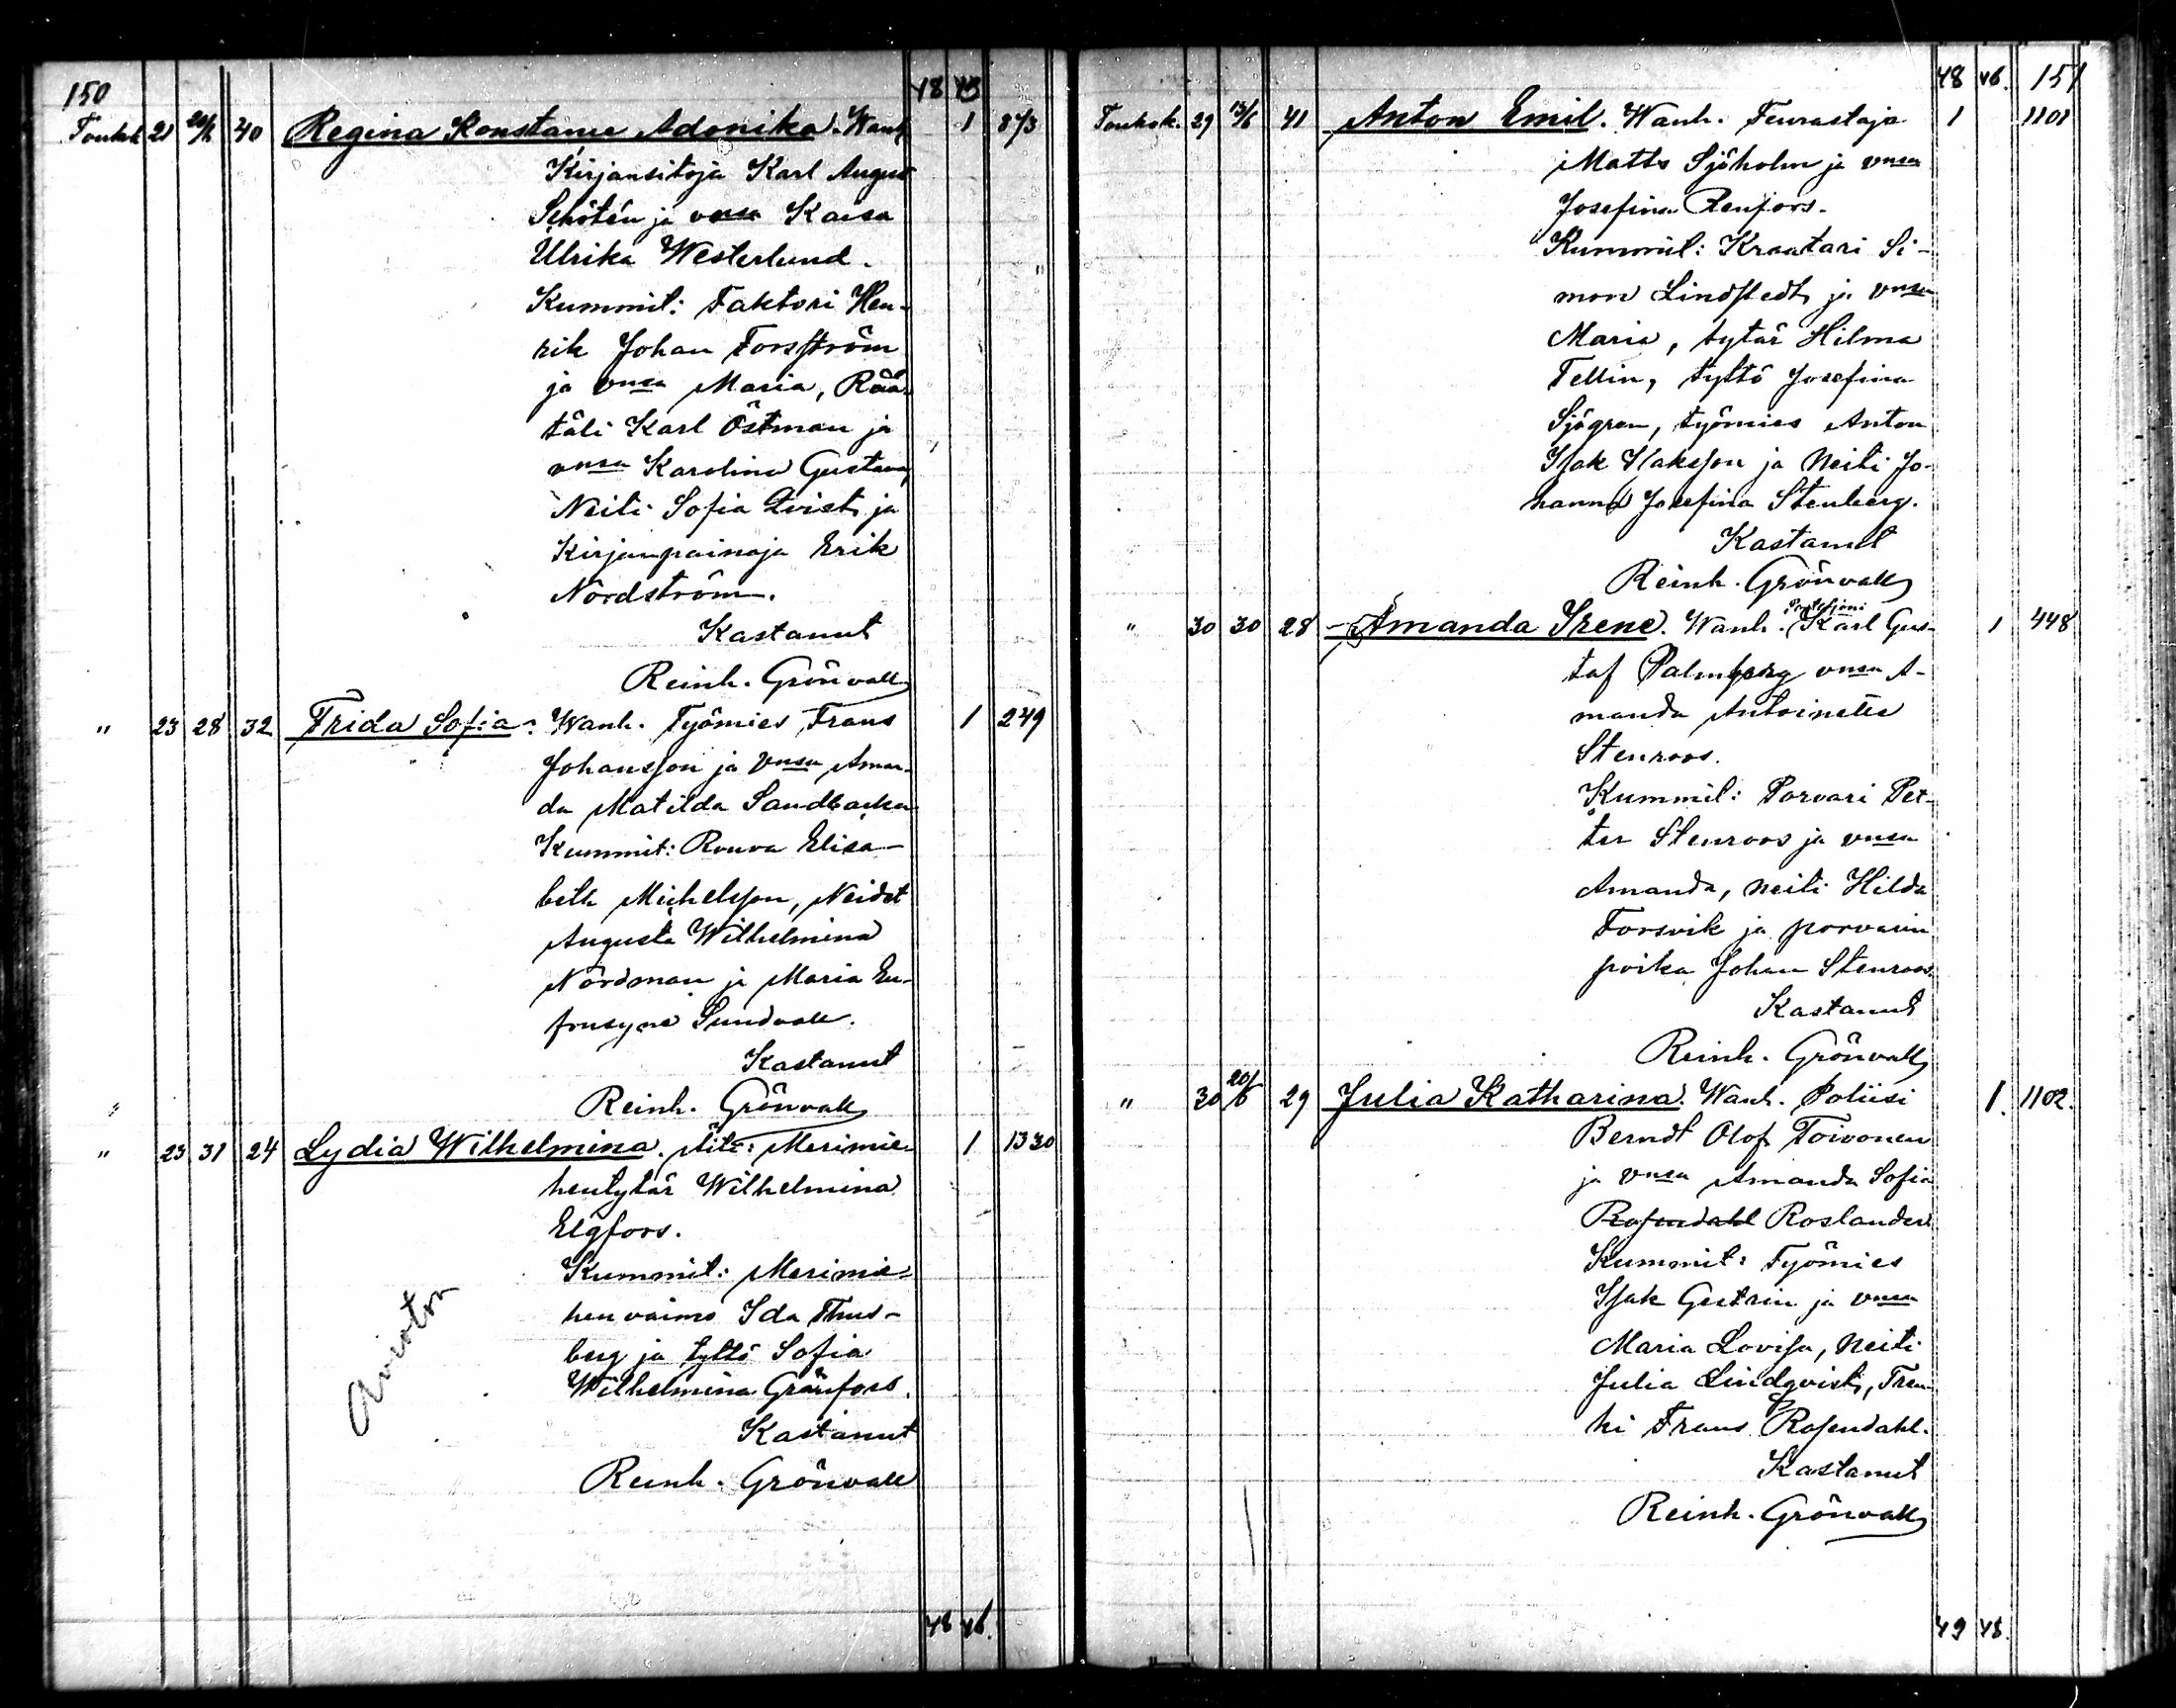 150
48 43
Toukok 21 20/6 40 Regina Konstanse Adonika. Wanh. 1 873
Kirjansitoja Karl August
Schötén ja vnsa Kaisa
Ulrika Westerlund.
Kummit: Faktori Hen-
rik Johan Forsström
ja vnsa Maria, Rää-
täli Karl Östman ja
vnsa Karolina Gustava,
Neiti Sofia Qvist ja
Kirjanpainaja Erik
Nordström.
Kastanut
Reinh. Grönvall
" 23 28 32 Frida Sofia. Wanh. Työmies Frans 1 249
Johansson ja Vnsa Aman-
da Matilda Sandbacka
Kummit: Rouva Elisa-
beth Michelsson, Neidet
Augusta Wilhelmina
Nordman ja Maria Eu-
frusyne Sundvall.
Kastanut
Reinh. Grönvall
" 23 31 24 Lydia Wilhelmina. Äiti: Merimie- 1 1330
hentytär Wilhelmina
Elgfors.
Kummit: Merimie-
hen vaimo Ida Thus-
berg ja tyttö Sofia
Wilhelmina Gränfors.
Kastanut
Reinh. Grönvall
Avioton
48 46.
48 46. 151
Toukok. 29 13/6 41 Anton Emil. Wanh. Teurastaja 1 1101
Matts Sjöholm ja vnsa
Josefina Renfors.
Kummit: Kraatari Si-
mon Lindstedt ja vnsa
Maria, tytär Hilma
Tellin, tyttö Josefina
Sjögren, työmies Anton
Isak Isaksson ja Neiti Jo-
hanna Josefina Stenberg.
Kastanut
Reinh. Grönvall
" 30 30 28 Amanda Irene. Wanh. Karl Gus- 1 448
taf Palmberg vnsa A-
manda Antoinette
Stenroos.
Kummit: Porvari Pet-
ter Stenroos ja vnsa
Amanda, neiti Hilda
Forsvik ja porvarin
poika Johan Stenroos.
Kastanut
Reinh. Grönvall
" 30 20/6 29 Julia Katharina. Wanh. Poliisi 1. 1102.
Berndt Olof Toivonen
ja vnsa Amanda Sofia
Rosendahl Roslander
Kummit: Työmies
Isak Gestrin ja vnsa
Maria Lovisa, Neiti
Julia Lindqvist, Tren-
ki Frans Rosendahl.
Kastanut
Reinh. Grönvall
49 48.